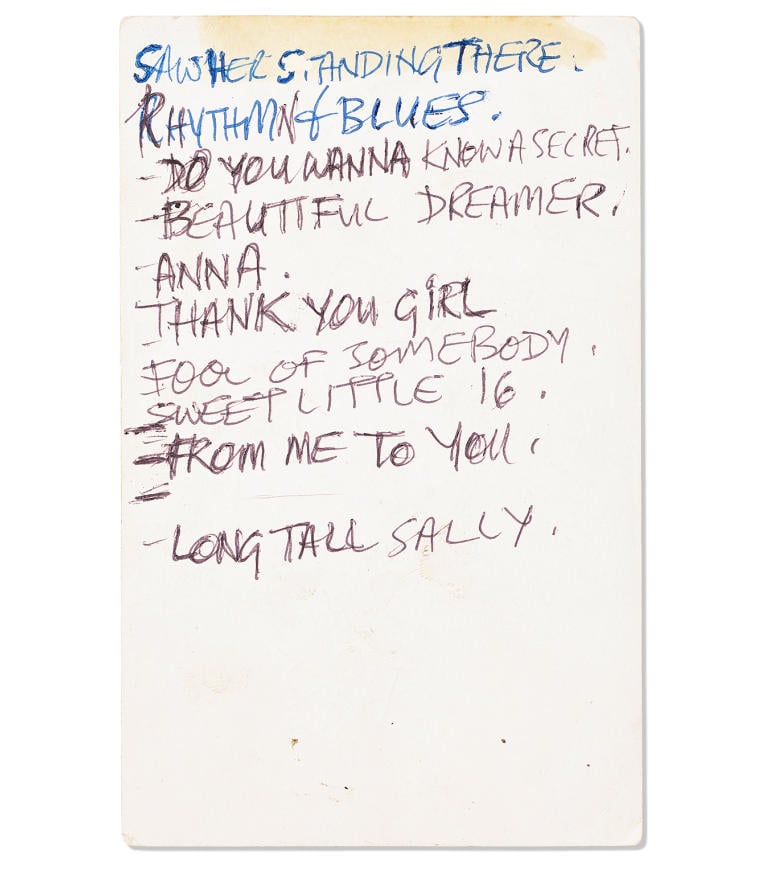 SAW HER STANDING THERE.
RHYTHMN & BLUES.
- DO YOU WANNA KNOW A SECRET.
- BEAUTIFUL DREAMER.
- ANNA.
THANK YOU GIRL
- FOOL OF SOMEBODY.
SWEET LITTLE 16.
- FROM ME TO YOU.
- LONG TALL SALLY.